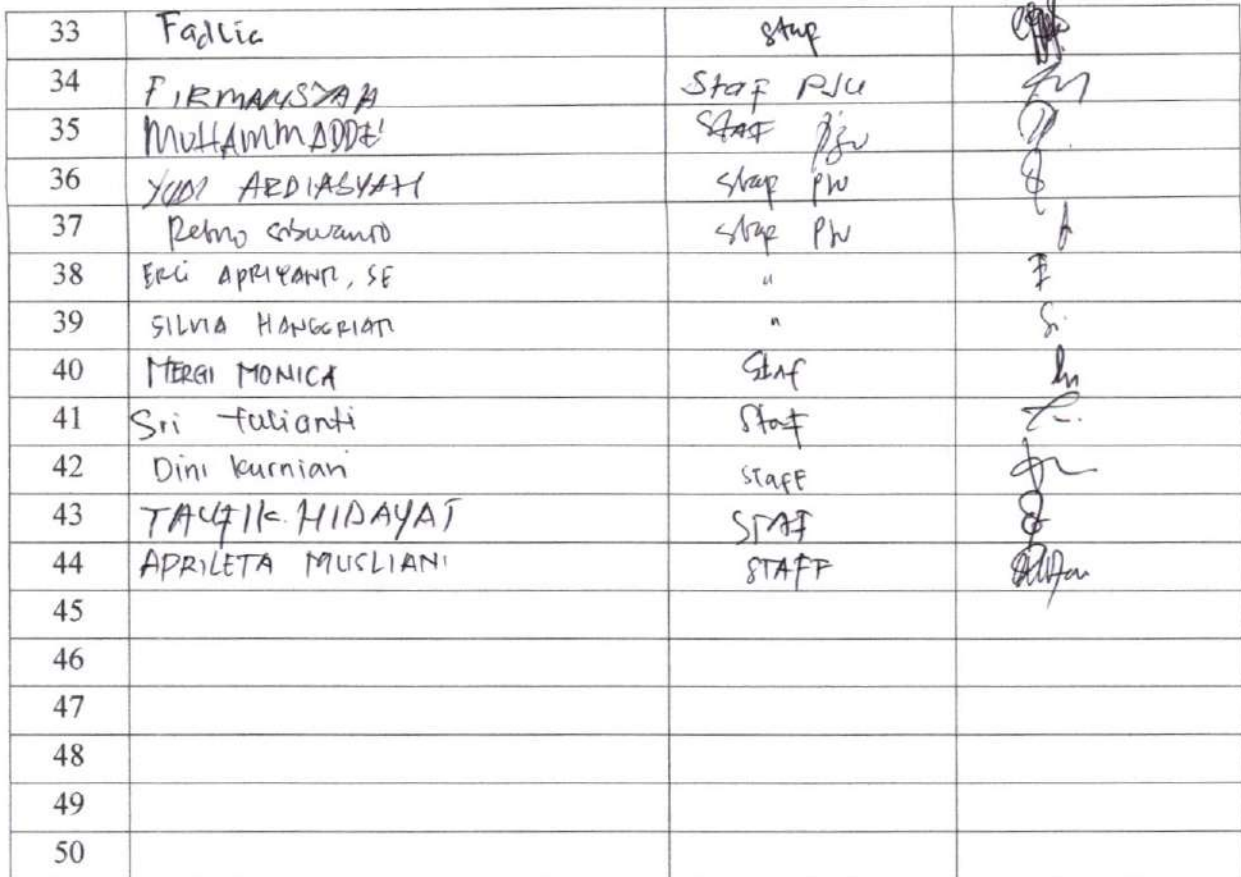 33 Fadlia Staf
34 FIRMANSYAH Staf PJU
35 MUHAMMADDE' STAF PJU
36 YUDI ARDIASYAH Staf PJU
37 Retno Staf PJU
38 ERCI APRIYANTI, SE "
39 SILVIA HANGGRIATI "
40 MERGI MONICA Staf
41 Sri Yulianti Staf
42 Dini kurniari STAFF
43 TAUFIK HIDAYAT STAF
44 APRILETA MUSLIANI STAFF
45
46
47
48
49
50